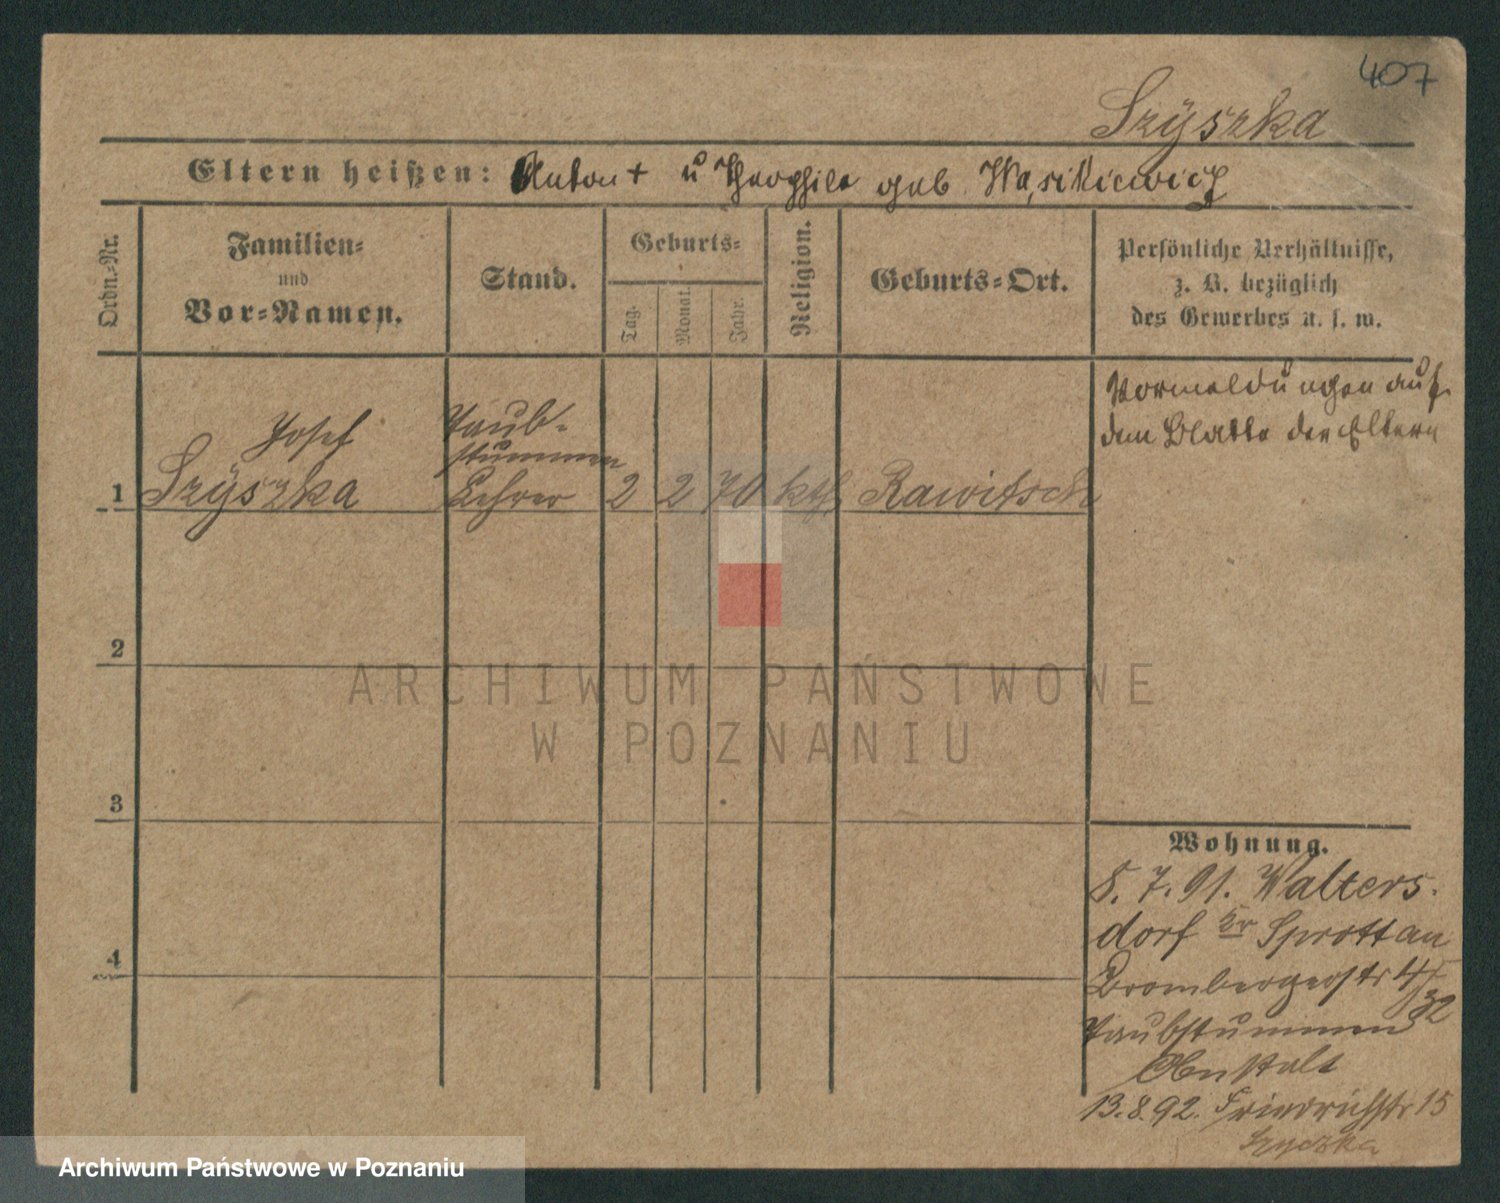 407
Szÿszka
Eltern heißen: Anton + u Theophile geb Wasikiewicz
Ordn.-Nr.
Familien-
und
Vor-Namen.
Stand.
Geburts-
Tag.
Monat.
Jahr.
Religion.
Geburts-Ort.
Persönliche Verhältnisse,
z. B. bezüglich
des Gewerbes u. s. w.
Vormeldungen auf
dem Blatte der Eltern
Josef
Taub-
stummen
1 Szÿszka Lehrer 2 2 70 kth Rawitsch
2
3
4
Wohnung.
8. 7. 91. Walters-
dorf Kr Sprottau
Brombergerstr 4/
32
Taubstummen
Anstalt
13.8.92. Friedrichstr 15
Szyszka
ARCHIWUM PAŃSTWOWE
W POZNANIU
Archiwum Państwowe w Poznaniu